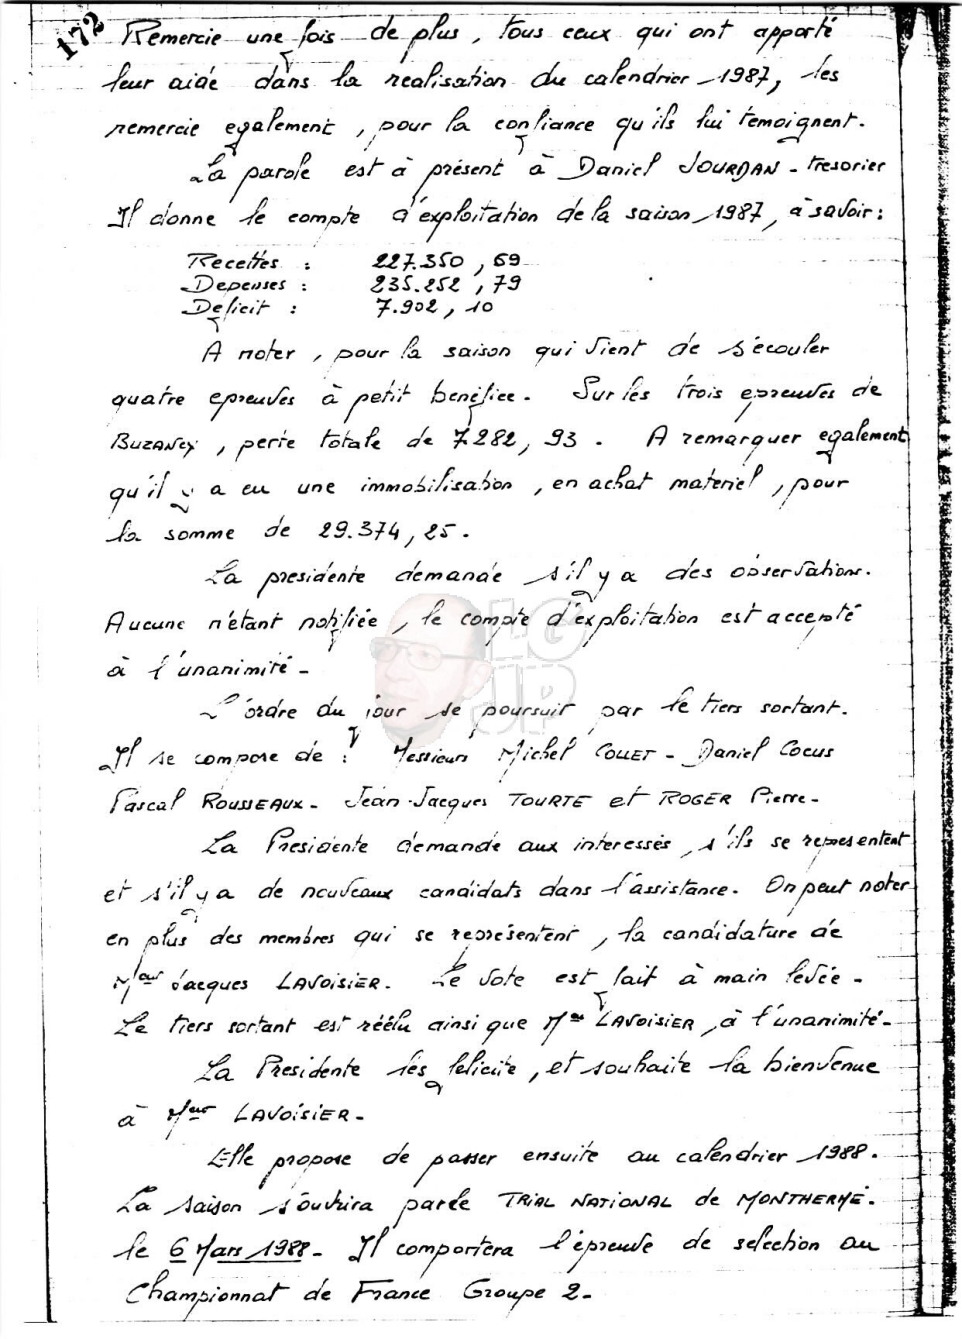 172
Remercie une fois de plus, tous ceux qui ont apporté
leur aide dans la realisation du calendrier 1987, les
remercie egalement, pour la confiance qu'ils lui temoignent.
La parole est à présent à Daniel JOURDAN - tresorier
Il donne le compte d'exploitation de la saison 1987, à savoir :
Recettes : 227.350,69
Depenses : 235.252,79
Deficit : 7.902,10
A noter, pour la saison qui vient de s'écouler
quatre epreuves à petit benefice. Sur les trois epreuves de
BUZANCY, perte totale de 7282,93. A remarquer egalement
qu'il y a eu une immobilisation, en achat materiel, pour
la somme de 29.374,25.
La presidente demande s'il y a des observations.
Aucune n'étant notifiée, le compte d'exploitation est accepté
à l'unanimité -
LG
JP
L'ordre du jour se poursuit par le tiers sortant.
Il se compose de : Messieurs Michel COLLET - Daniel COCUS
Pascal ROUSSEAUX - Jean-Jacques TOURTE et ROGER Pierre -
La Presidente demande aux interessés, s'ils se representent
et s'il y a de nouveaux candidats dans l'assistance. On peut noter
en plus des membres qui se représentent, la candidature de
Meur Jacques LAVOISIER. Le vote est fait à main levée -
Le tiers sortant est réélu ainsi que Meur LAVOISIER, à l'unanimité -
La Presidente les felicite, et souhaite la bienvenue
à Meur LAVOISIER -
Elle propose de passer ensuite au calendrier 1988.
La saison s'ouvrira par le TRIAL NATIONAL de MONTHERMÉ.
le 6 Mars 1988 - Il comportera l'épreuve de selection au
Championnat de France Groupe 2 -